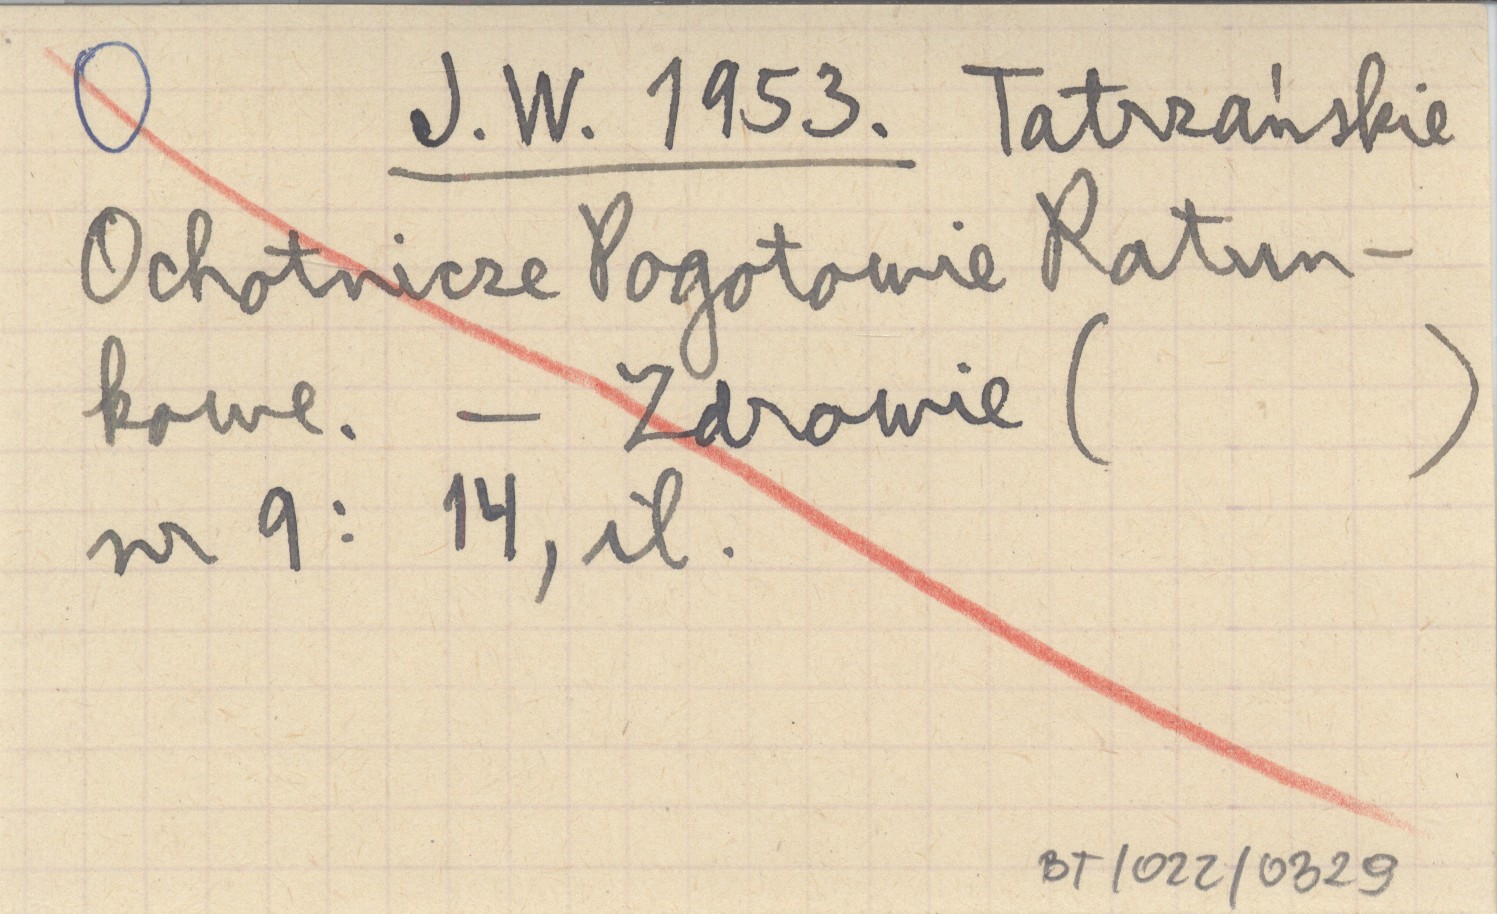 J. W. 1953. Tatrzańskie
Ochotnicze Pogotowie Ratun-
kowe. — Zdrowie (          )
nr 9: 14, il.
BT/022/0329